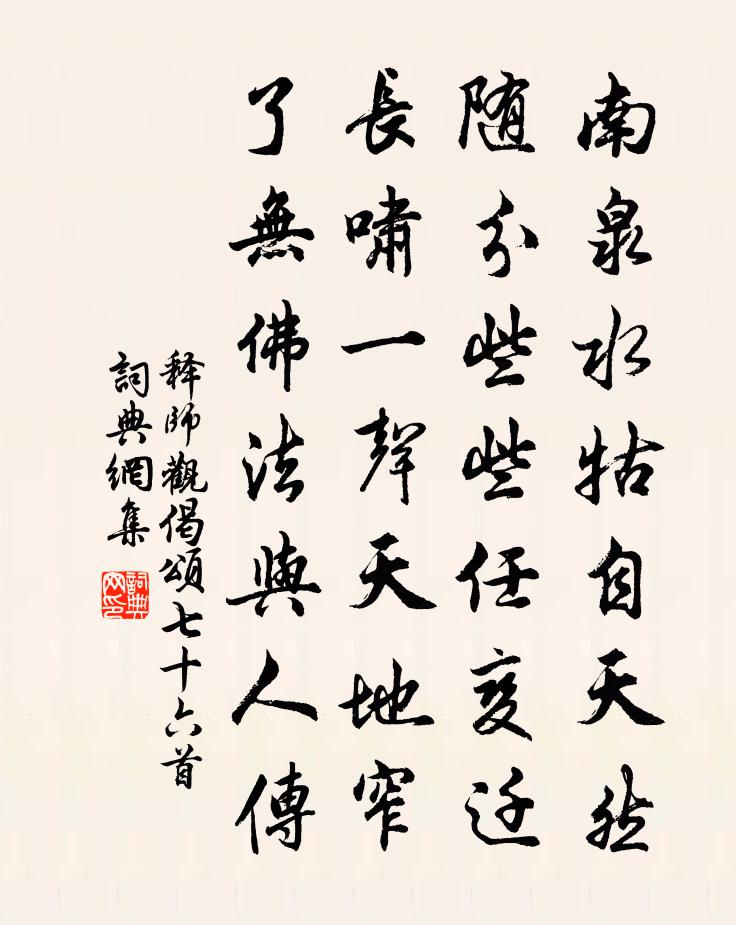 南泉水牯自天然
随分些些任变迁
長嘯一聲天地窄
了無佛法與人傳
释師觀偈頌七十六首
詞典網集
詞典網印